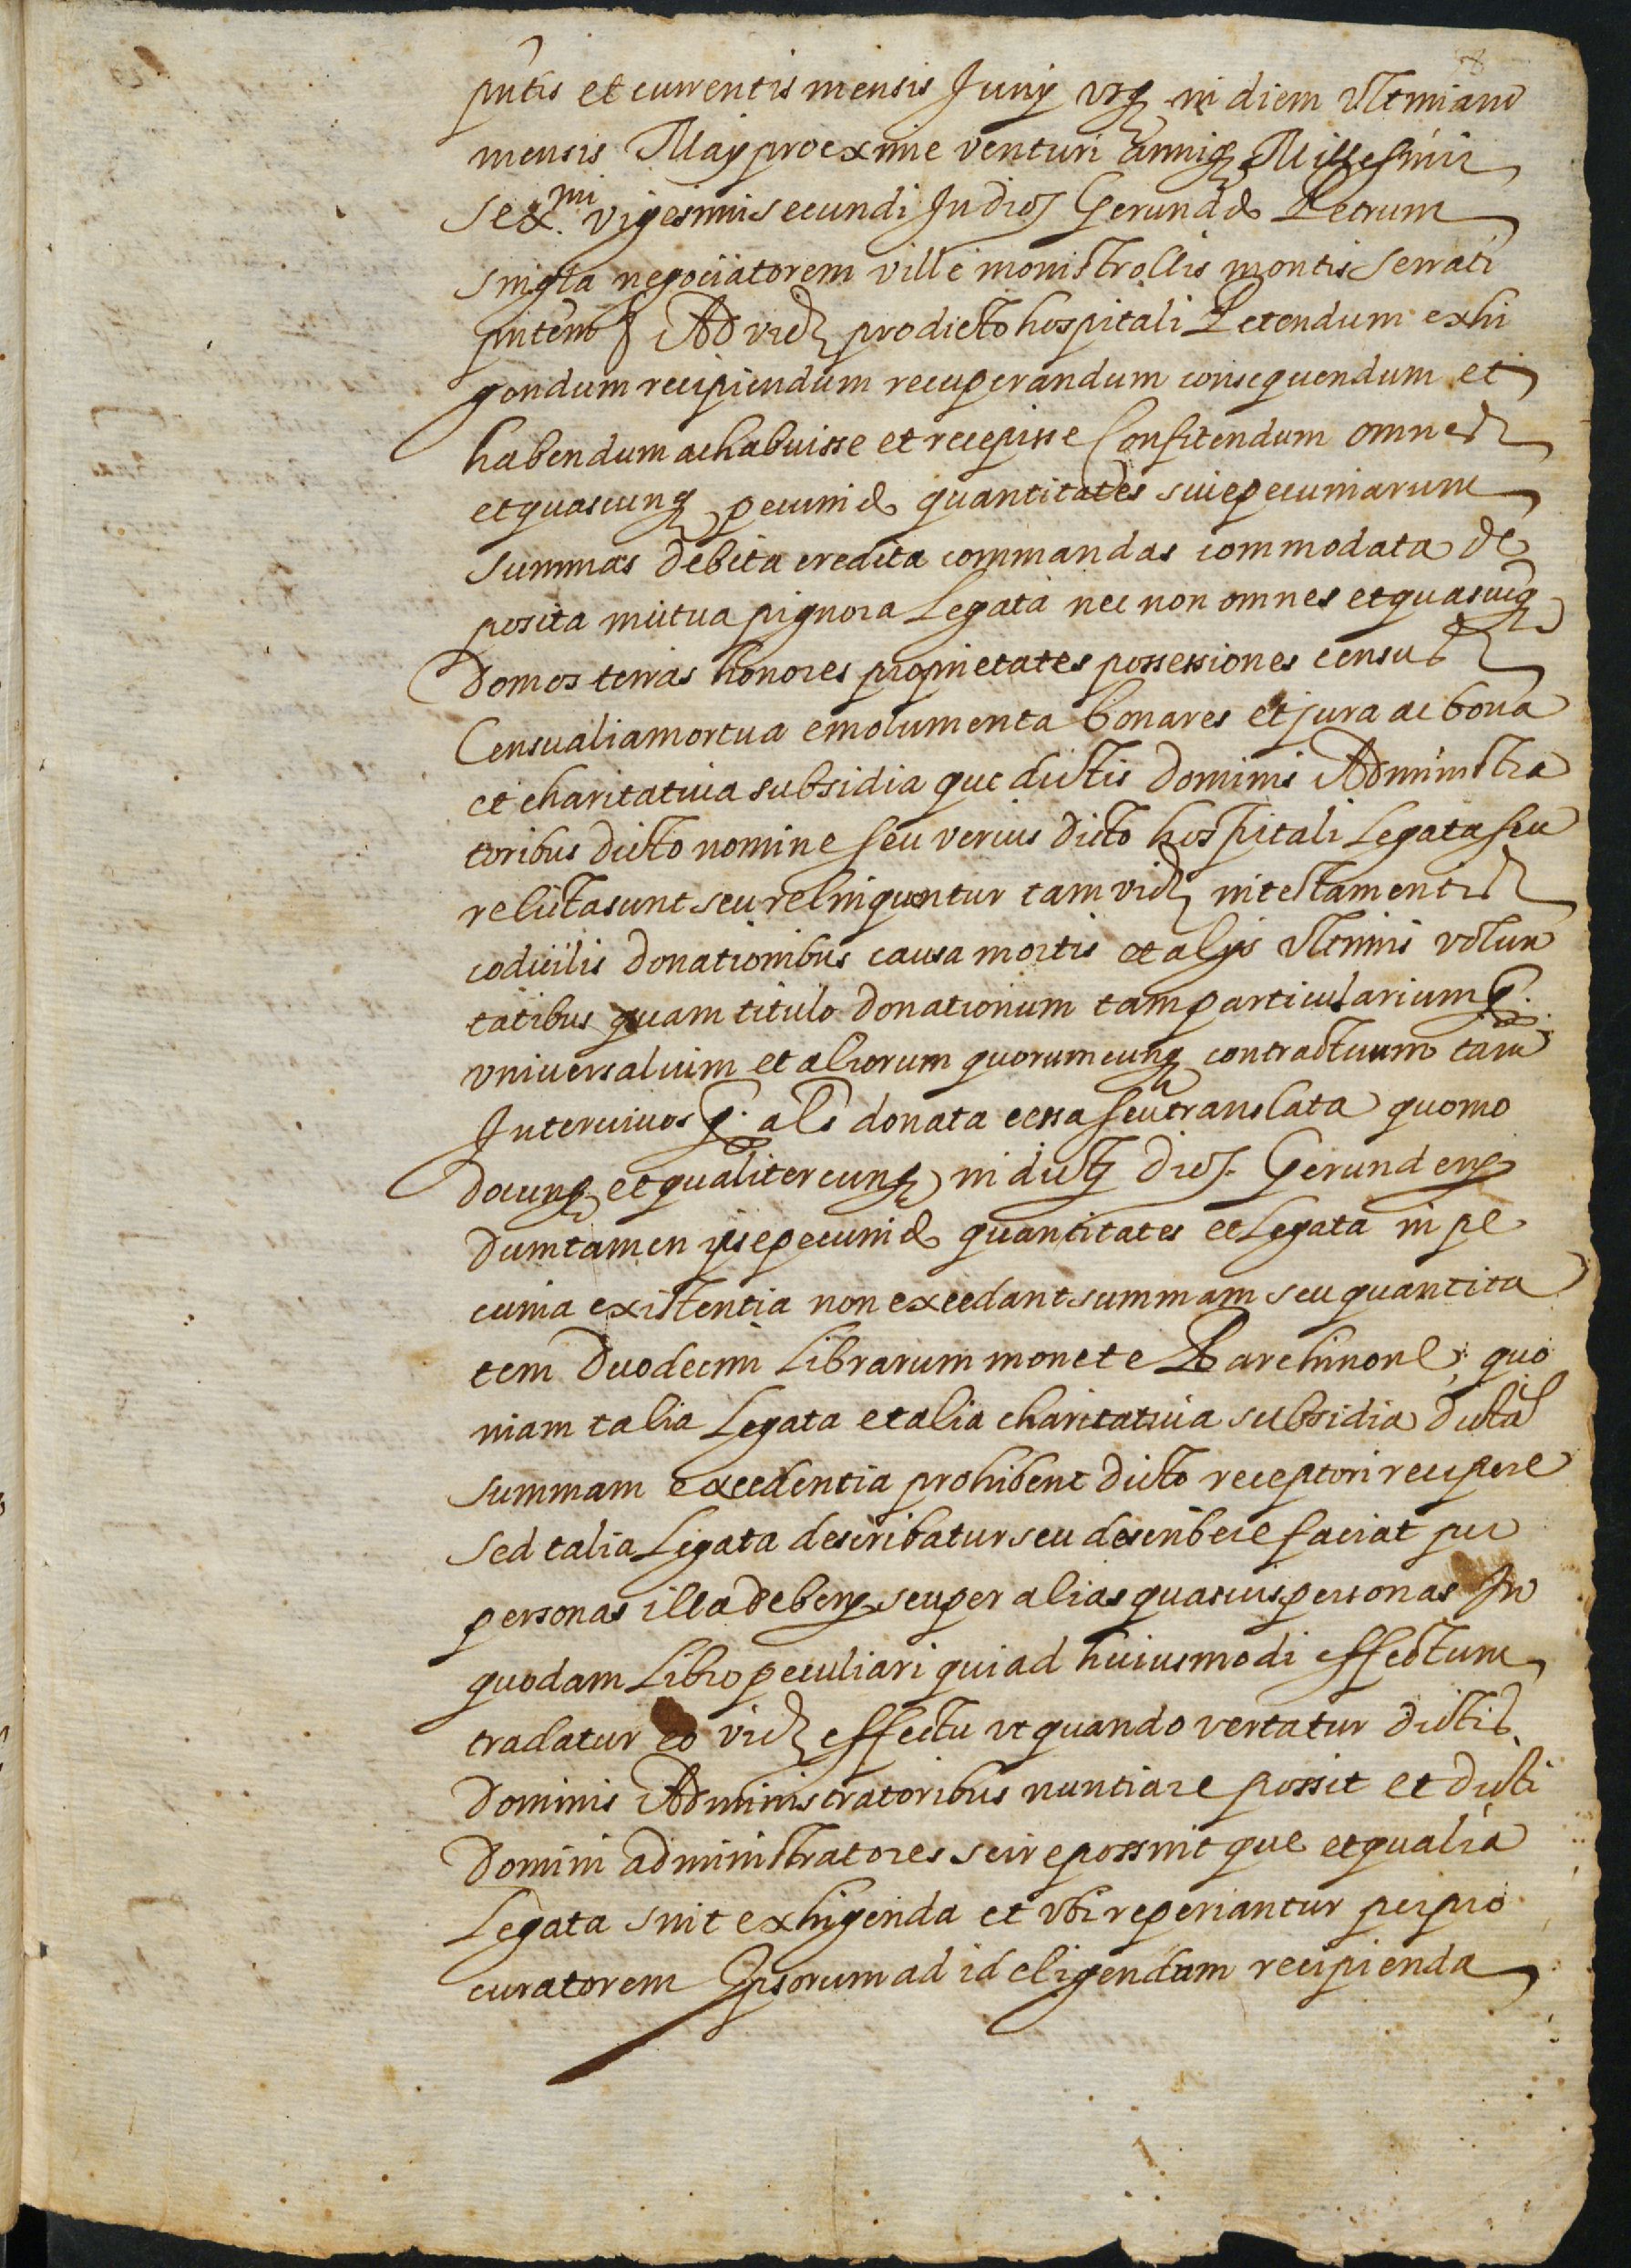 pntis et currentis mensis Junij usq in diem ultimam
mensis Maij proxime venturi anniq Millesimi
sex.mi vigesimi secundi In dios Gerunde Petrum
singla negociatorem ville monistrollis montis serrati
pntem Ad vidz pro dicto hospitali Petendum exhi
gendum recipiendum recuperandum consequendum et
habendum ac habuisse et recepisse Confitendum omnes
et quascunq pecunie quantitates sive pecuniarum
summas debita credita commandas commodata de
posita mutua pignora Legata nec non omnes et quascuq
domos terras honores proprietates possessiones census
Censualia mortua emolumenta bona res et jura ac bona
et charitativa subsidia que dictis dominis Administra
toribus dicto nomine seu verius dicto hospitali Legata seu
relicta sunt seu relinquentur tam vidz in testamentis
codicilis donationibus causa mortis et alijs ultimis volun
tatibus quam titulo donationum tam particularium q.
universalium et aliorum quorumcunq contractuum tam
Inter vivos q. als donata cessa seu translata quomo
docunq et qualitercunq in dicta dios. Gerunden
dumtamen ipse pecunie quantitates et Legata in pe
cunia existentia non excedant summam seu quantita
tem duodecim Librarum monete Barchinone; quo
niam talia Legata et alia charitativa subsidia dictā
summam excedentia prohibent dicto receptori recipere
sed talia Legata describatur seu describere faciat per
personas illa deben seu per alias quasvis personas In
quodam Libro peculiari qui ad huiusmodi effectum
tradatur eo vidz effectu ut quando vertatur dictis
dominis Administratoribus nuntiare possit et dicti
domini administratores scire possint que et qualia
Legata sint exhigenda et ubi reperiantur per pro
curatorem Ipsorum ad id eligendum recipienda